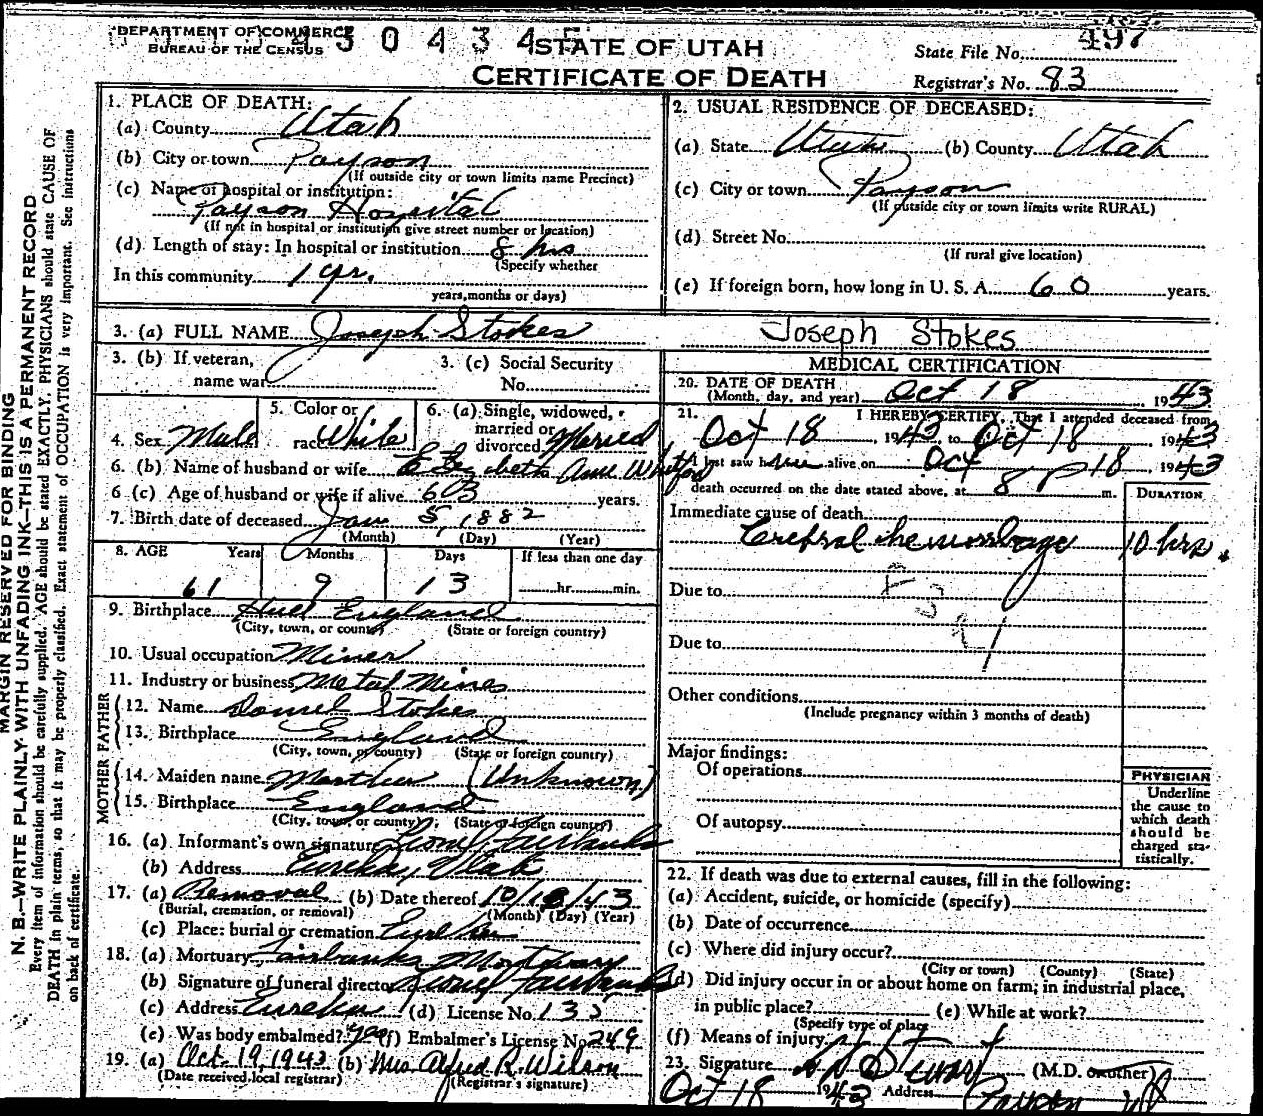 DEPARTMENT OF COMMERCE
BUREAU OF THE CENSUS
STATE OF UTAH
CERTIFICATE OF DEATH
State File No. 497
Registrar's No. 83
MARGIN RESERVED FOR BINDING
N. B.—WRITE PLAINLY WITH UNFADING INK—THIS IS A PERMANENT RECORD
Every item of information should be carefully supplied. AGE should be stated EXACTLY. PHYSICIANS should state CAUSE OF
DEATH in plain terms, so that it may be properly classified. Exact statement of OCCUPATION is very important. See instructions
on back of certificate.
1. PLACE OF DEATH:
(a) County Utah
(b) City or town Payson
(If outside city or town limits name Precinct)
(c) Name of hospital or institution:
Payson Hospital
(If not in hospital or institution give street number or location)
(d) Length of stay: In hospital or institution 8 hrs
(Specify whether
In this community 1 yr.
years, months or days)
2. USUAL RESIDENCE OF DECEASED:
(a) State Utah (b) County Utah
(c) City or town Payson
(If outside city or town limits write RURAL)
(d) Street No.
(If rural give location)
(e) If foreign born, how long in U. S. A. 60 years.
3. (a) FULL NAME Joseph Stokes Joseph Stokes
3. (b) If veteran,
name war
3. (c) Social Security
No.
4. Sex Male
5. Color or
race White
6. (a) Single, widowed,
married or
divorced Married
6. (b) Name of husband or wife Elizabeth Ann
6 (c) Age of husband or wife if alive 60 years.
7. Birth date of deceased Jan 5, 1882
(Month) (Day) (Year)
8. AGE Years Months Days If less than one day
61 9 13 hr. min.
9. Birthplace Hull England
(City, town, or county) (State or foreign country)
10. Usual occupation Miner
11. Industry or business Metal Mines
FATHER
12. Name Daniel Stokes
13. Birthplace England
(City, town, or county) (State or foreign country)
MOTHER
14. Maiden name Martha (Unknown)
15. Birthplace England
(City, town, or county) (State or foreign country)
16. (a) Informant's own signature Fairbanks
(b) Address Eureka, Utah
17. (a) Removal (b) Date thereof 10/18/43
(Burial, cremation, or removal) (Month) (Day) (Year)
(c) Place: burial or cremation Eureka
18. (a) Mortuary Fairbanks Mortuary
(b) Signature of funeral director Fairbanks
(c) Address Eureka (d) License No. 135
(e) Was body embalmed? Yes (f) Embalmer's License No 249
19. (a) Oct 19, 1943 (b) Mrs Alfred R. Wilson
(Date received local registrar) (Registrar's signature)
MEDICAL CERTIFICATION
20. DATE OF DEATH
(Month, day, and year) Oct 18, 1943
21. I HEREBY CERTIFY, That I attended deceased from
Oct 18, 1943, to Oct 18, 1943
I last saw him alive on Oct 18, 1943
death occurred on the date stated above, at 8 P m.
DURATION
Immediate cause of death
Cerebral hemorrhage 10 hrs.
Due to
Due to
Other conditions
(Include pregnancy within 3 months of death)
Major findings:
Of operations
Of autopsy
PHYSICIAN
Underline
the cause to
which death
should be
charged sta-
tistically.
22. If death was due to external causes, fill in the following:
(a) Accident, suicide, or homicide (specify)
(b) Date of occurrence
(c) Where did injury occur?
(City or town) (County) (State)
(d) Did injury occur in or about home on farm; in industrial place,
in public place? (e) While at work?
(Specify type of place)
(f) Means of injury
23. Signature Stewart (M.D. or other)
Oct 18 1943 Address Payson